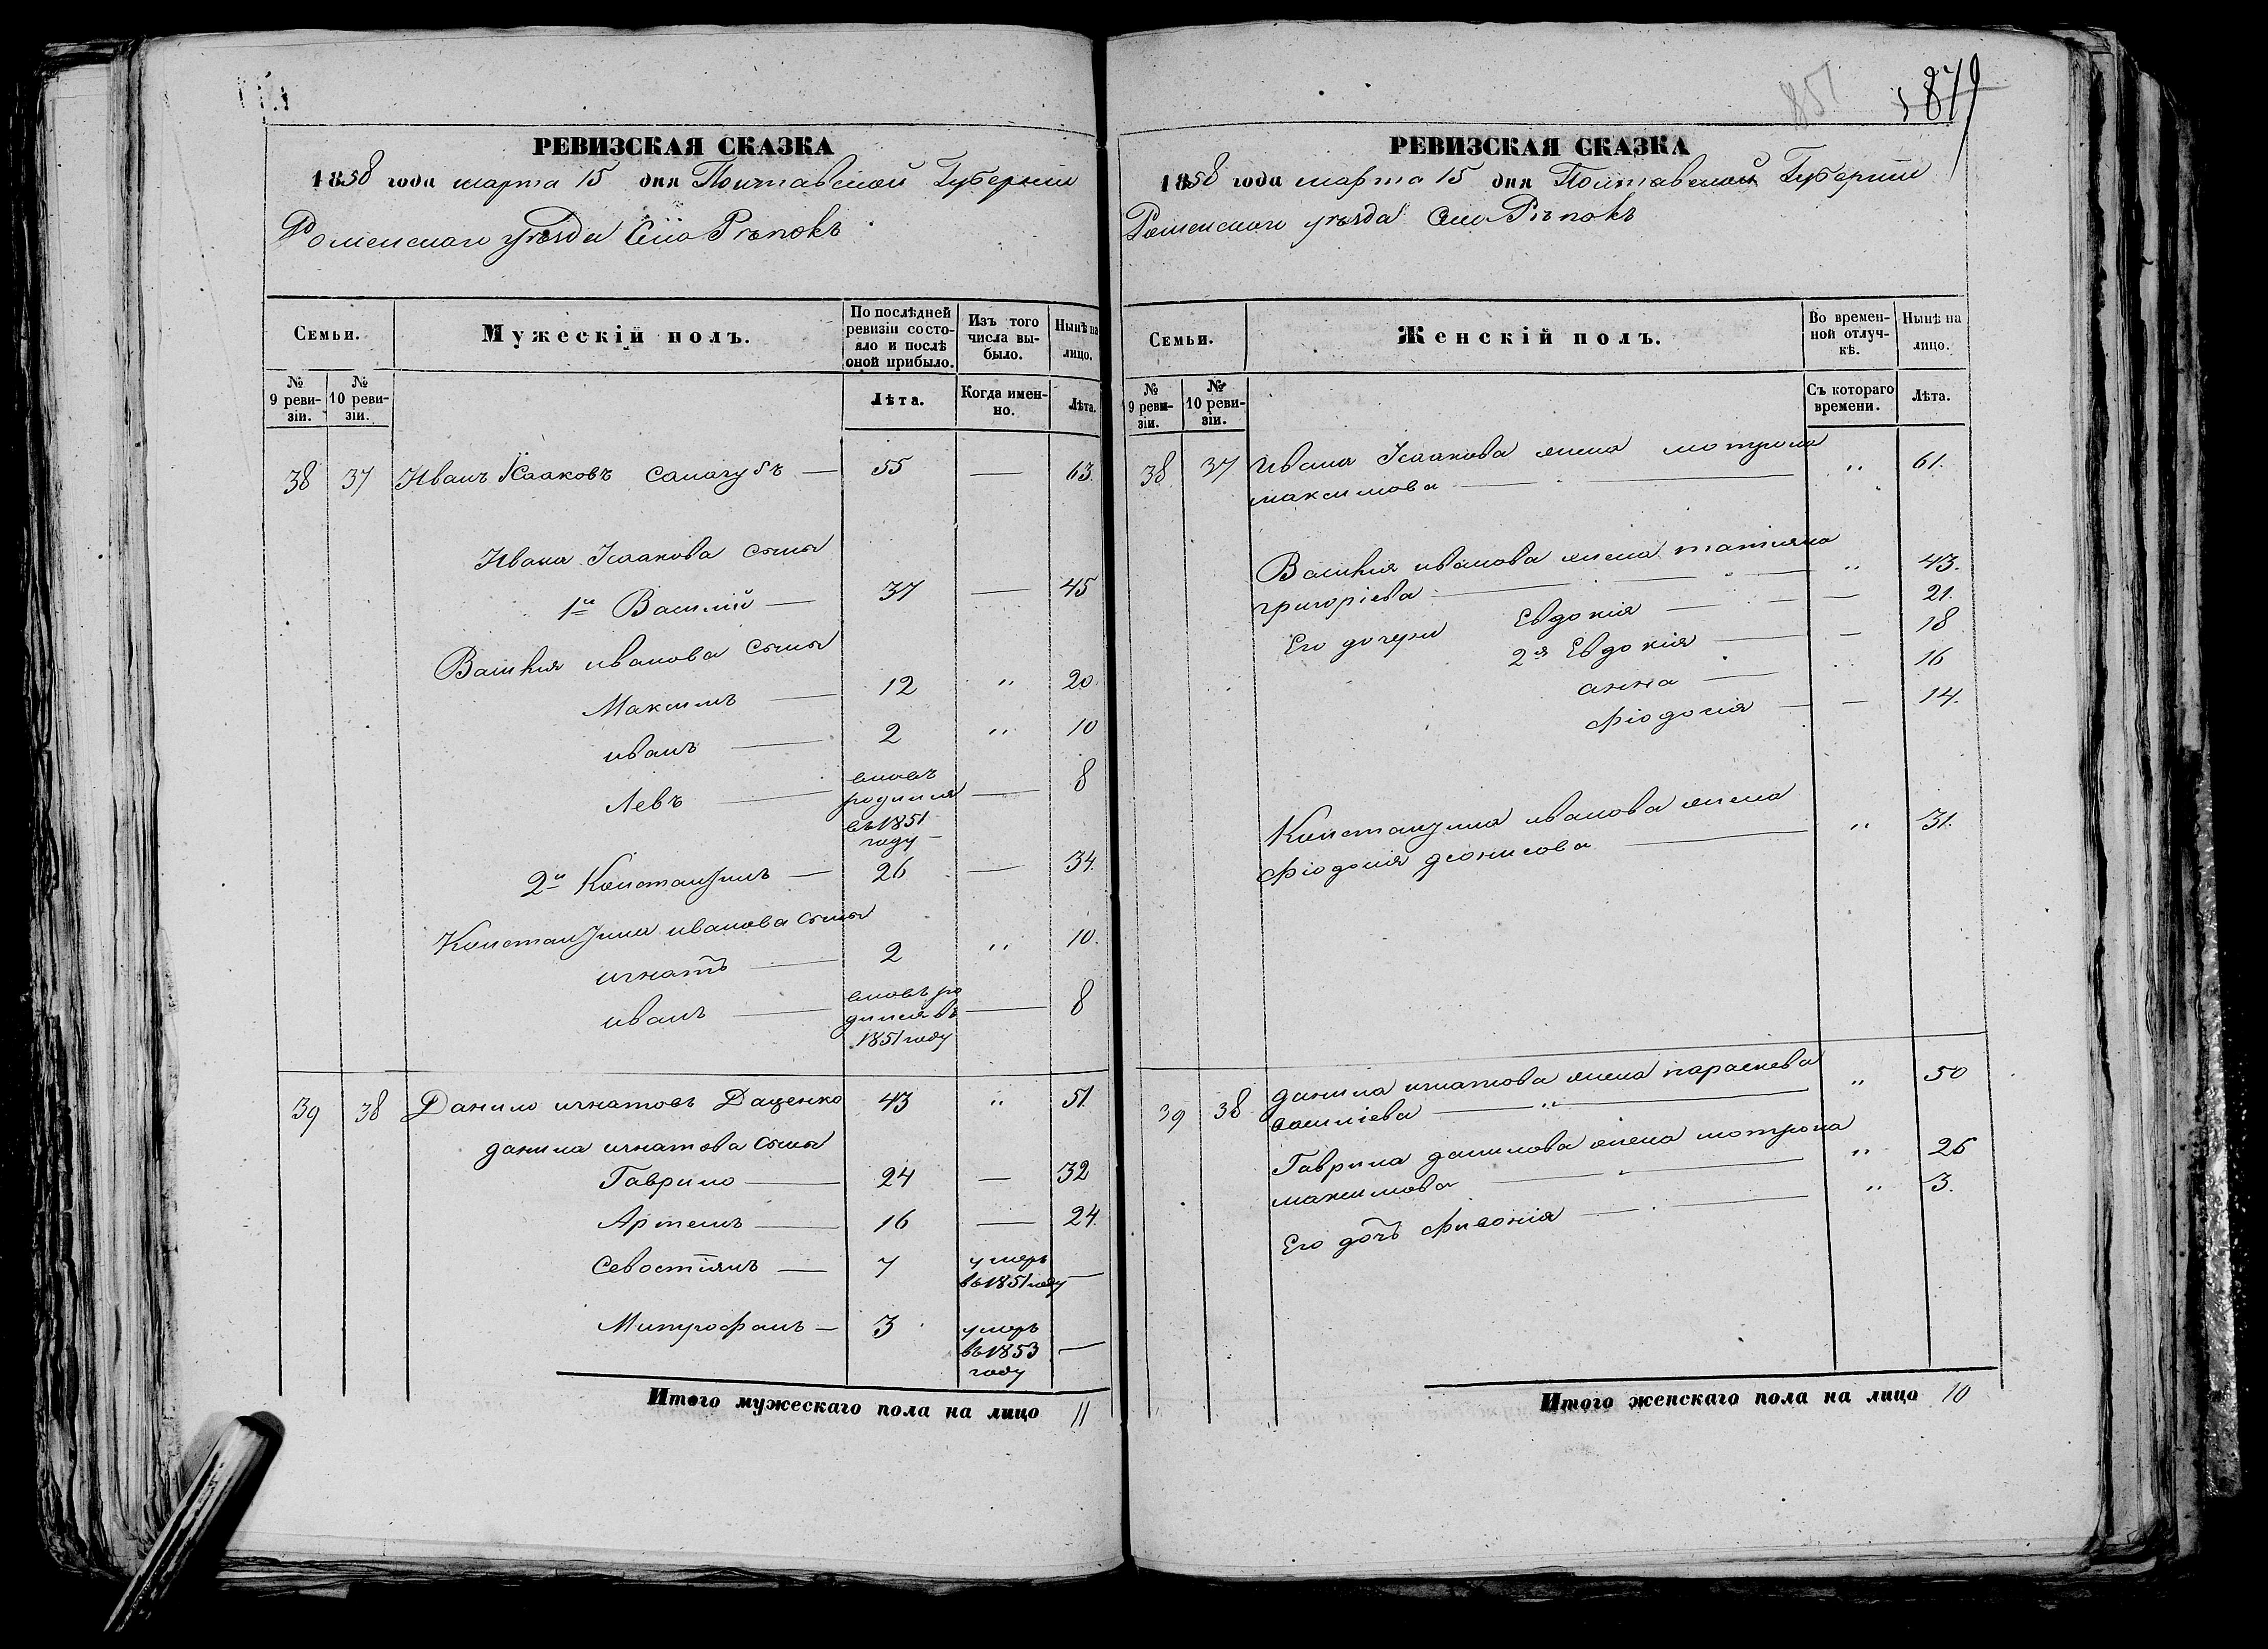 РЕВИЗСКАЯ СКАЗКА
1858 года марта 15 дня Полтавской Губернии
Роменского уѣзда Села Рѣпокъ
Семьи.
Мужескій полъ.
По послѣдней ревизіи состояло и послѣ оной прибыло.
Изъ того числа выбыло.
Нынѣ на лицо.
№ 9 ревизіи.
№ 10 ревизіи.
Лѣта.
Когда именно.
Лѣта.
38 37 Иванъ Ісааковъ Самагубъ — 55 — 63.
Ивана Ісаакова сыны
1й Василій — 37 — 45
Василія иванова сыны
Максимъ — 12 " 20.
иванъ — 2 " 10
Левъ — вновь родился въ 1851 году — 8
2й Константинъ — 26 — 34.
Константина иванова сыны
игнатъ — 2 " 10.
иванъ — вновь родился въ 1851 году — 8
39 38 Данило игнатовъ Даценко 43 " 51.
данила игнатова сыны
Гаврило — 24 — 32
Артемъ — 16 — 24.
Севостіянъ — 7 умеръ въ 1851 году —
Митрофанъ — 3 умеръ въ 1853 году —
Итого мужескаго пола на лицо 11
851
879
РЕВИЗСКАЯ СКАЗКА
1858 года марта 15 дня Полтавской Губернии
Роменского уѣзда Села Рѣпокъ
Семьи.
Женскій полъ.
Во временной отлучкѣ.
Нынѣ на лицо.
№ 9 ревизіи.
№ 10 ревизіи.
Съ котораго времени.
Лѣта.
38 37 Ивана Ісаакова жена мотрона
максимова — " 61.
Василія иванова жена татияна
григоріева — " 43.
Его дочери Евдокія — — 21.
2я Евдокія — — 18
анна — 16
Фіодосія — — 14.
Константина иванова жена
Фіодосія деонисова — " 31.
39 38 данила игнатова жена параскева
василіева — " 50
Гаврила данилова жена мотрона
максимова — " 26
Его дочь Фивонія — " 3.
Итого женскаго пола на лицо 10